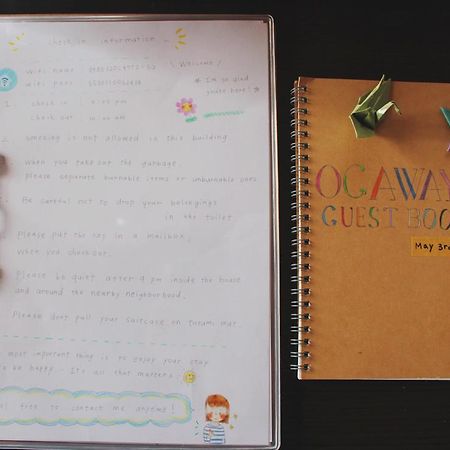 check in information
WELCOME!
WiFi name
I'm so glad
you're here!
WiFi pass
1. check in
check out
smoking is not allowed in this building
when you take out the garbage,
please separate burnable items or unburnable ones
Be careful not to drop your belongings
in the toilet
Please put the key in a mailbox,
when you check out.
Please be quiet after 9 pm inside the house
and around the nearby neighborhood.
Please don't pull your suitcase on tatami mat.
most important thing is to enjoy your stay
be happy. It's all that matters.
free to contact me anytime!
OGAWAY
GUEST BOO
May 3r